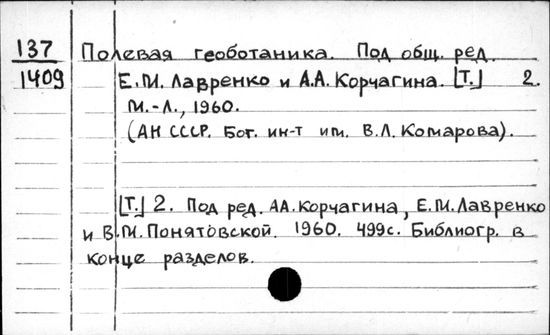 137 Полевая геоботаника. Под общ. ред.
1409 Е.М. Лавренко и А.А. Корчагина. [Т.] 2.
М.-Л., 1960.
(АН СССР. Бот. ин-т им. В.Л. Комарова).
[Т.] 2. Под ред. А.А. Корчагина, Е.М. Лавренко
и В.М. Понятовской. 1960. 499с. Библиогр. в
конце разделов.